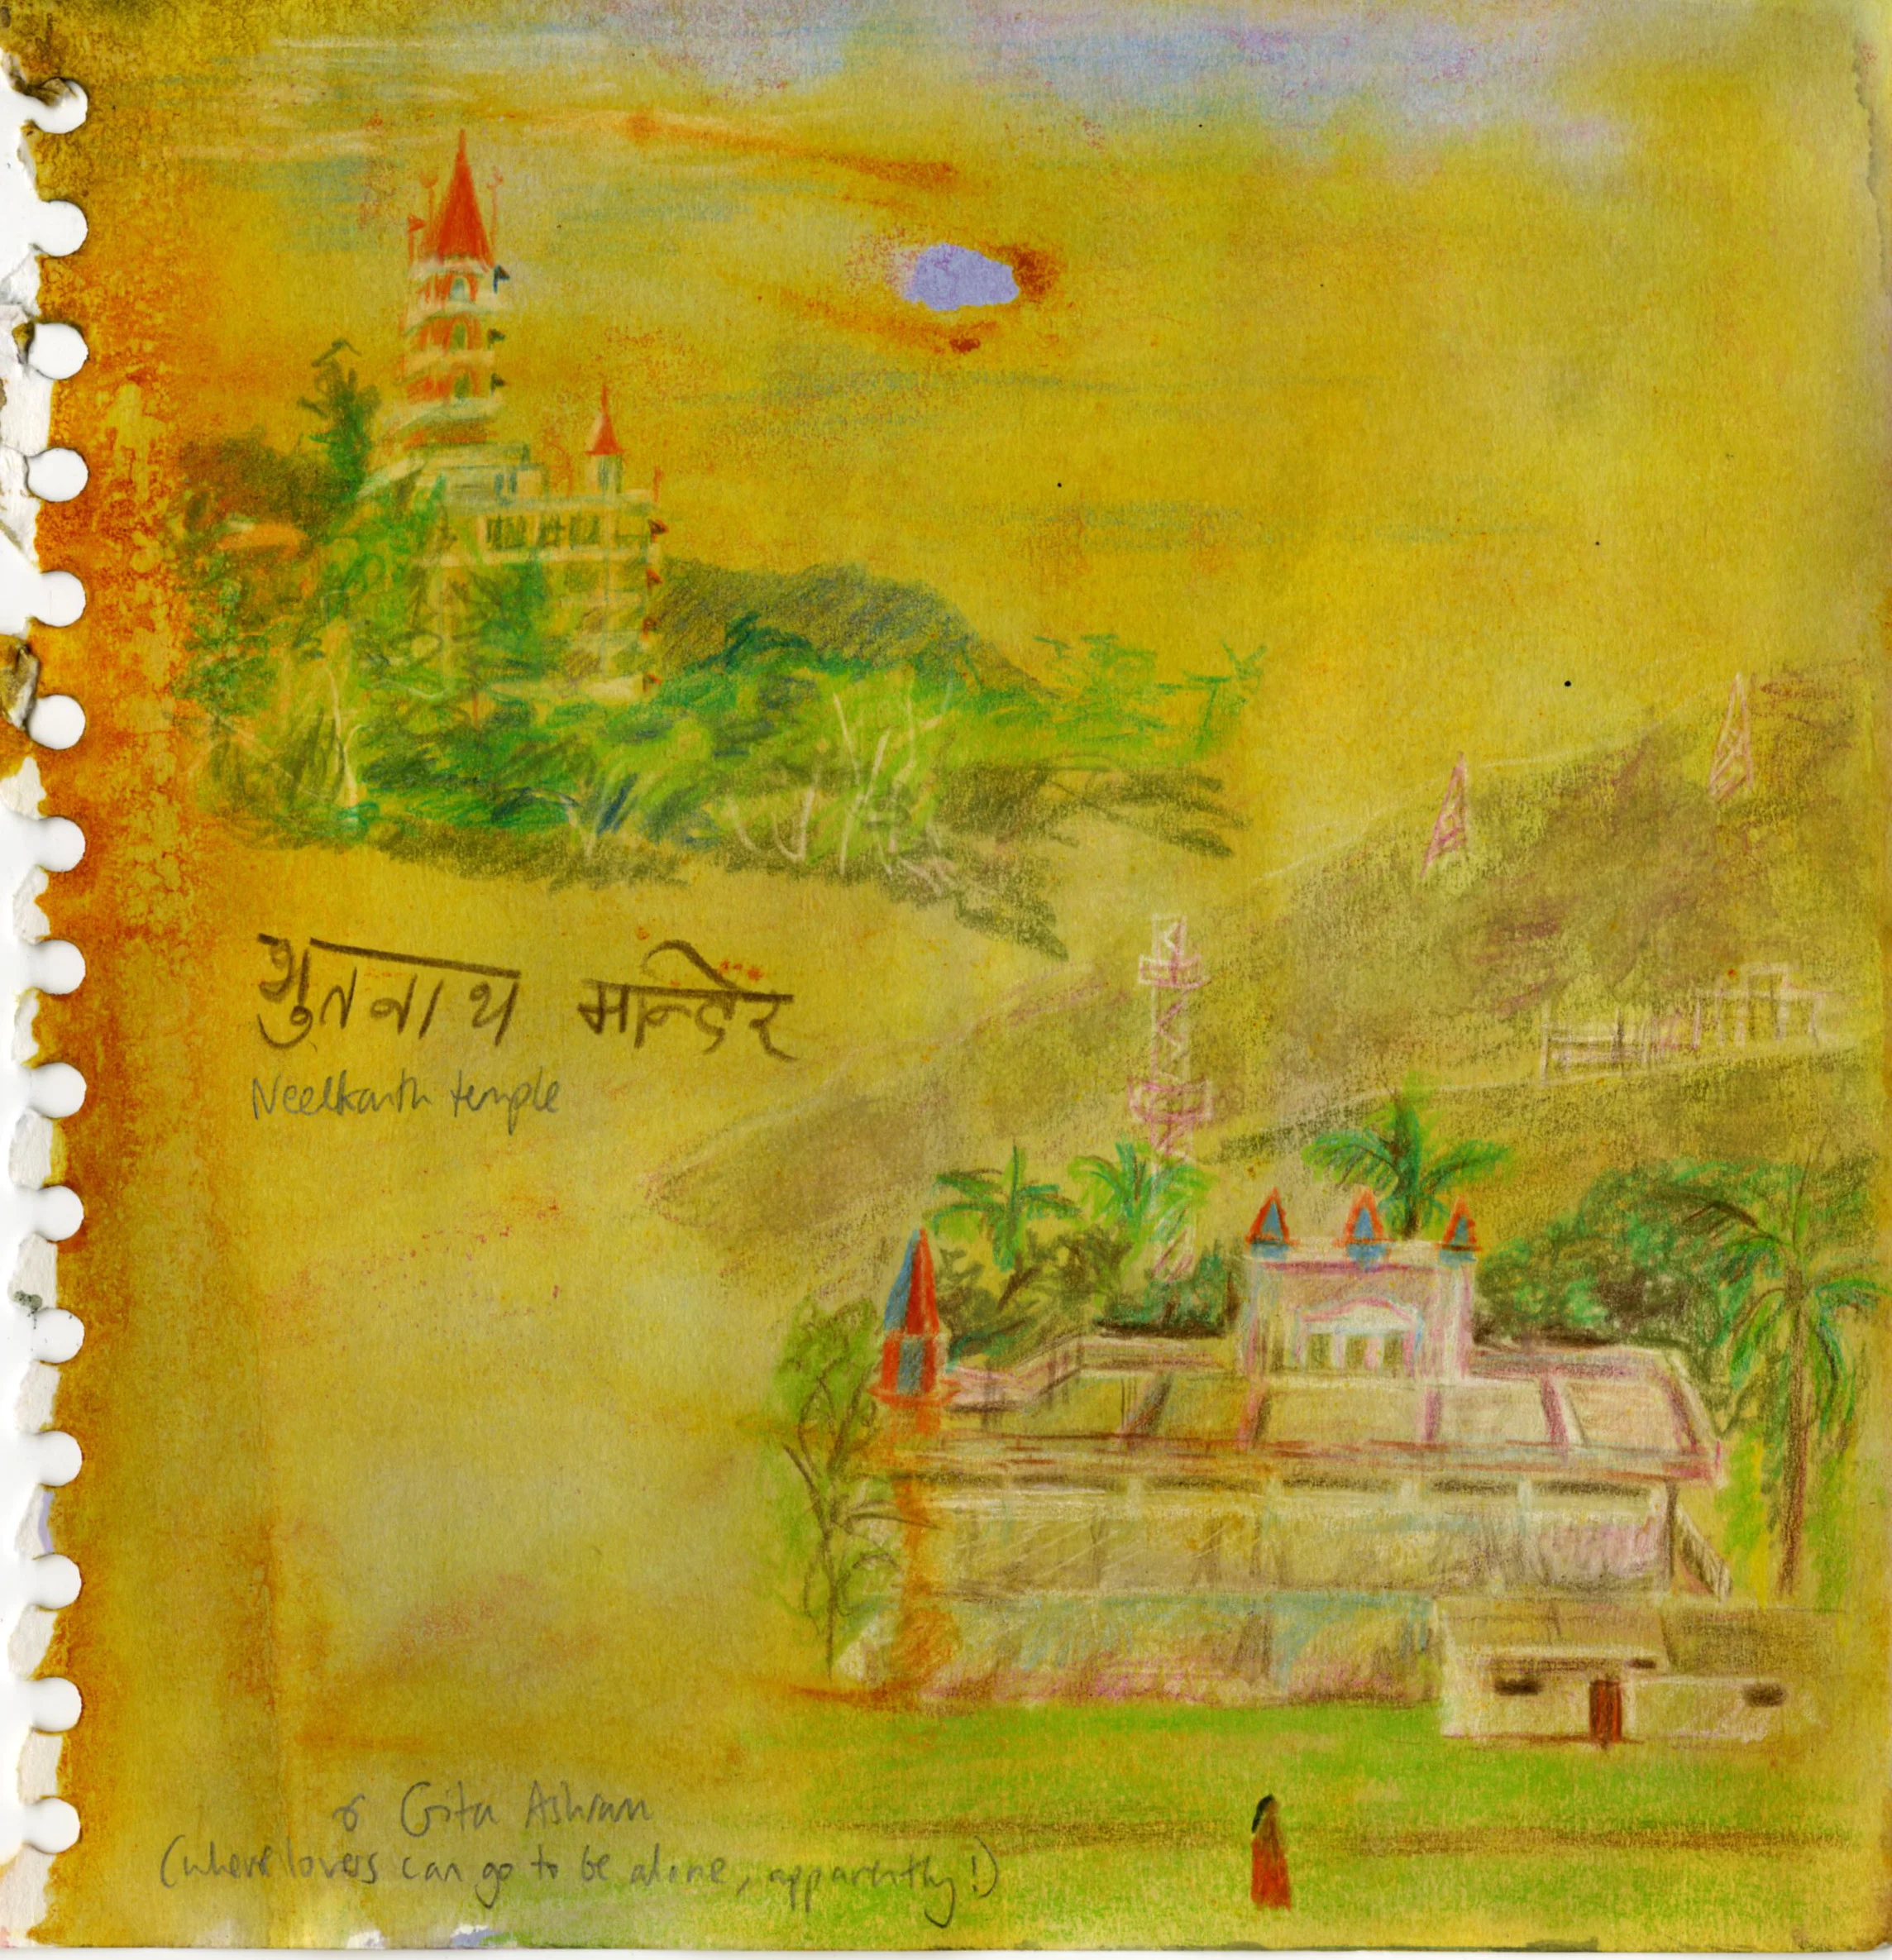 भुतनाथ मन्दिर
Neelkanth temple
& Gita Ashram
(where lovers can go to be alone, apparently!)